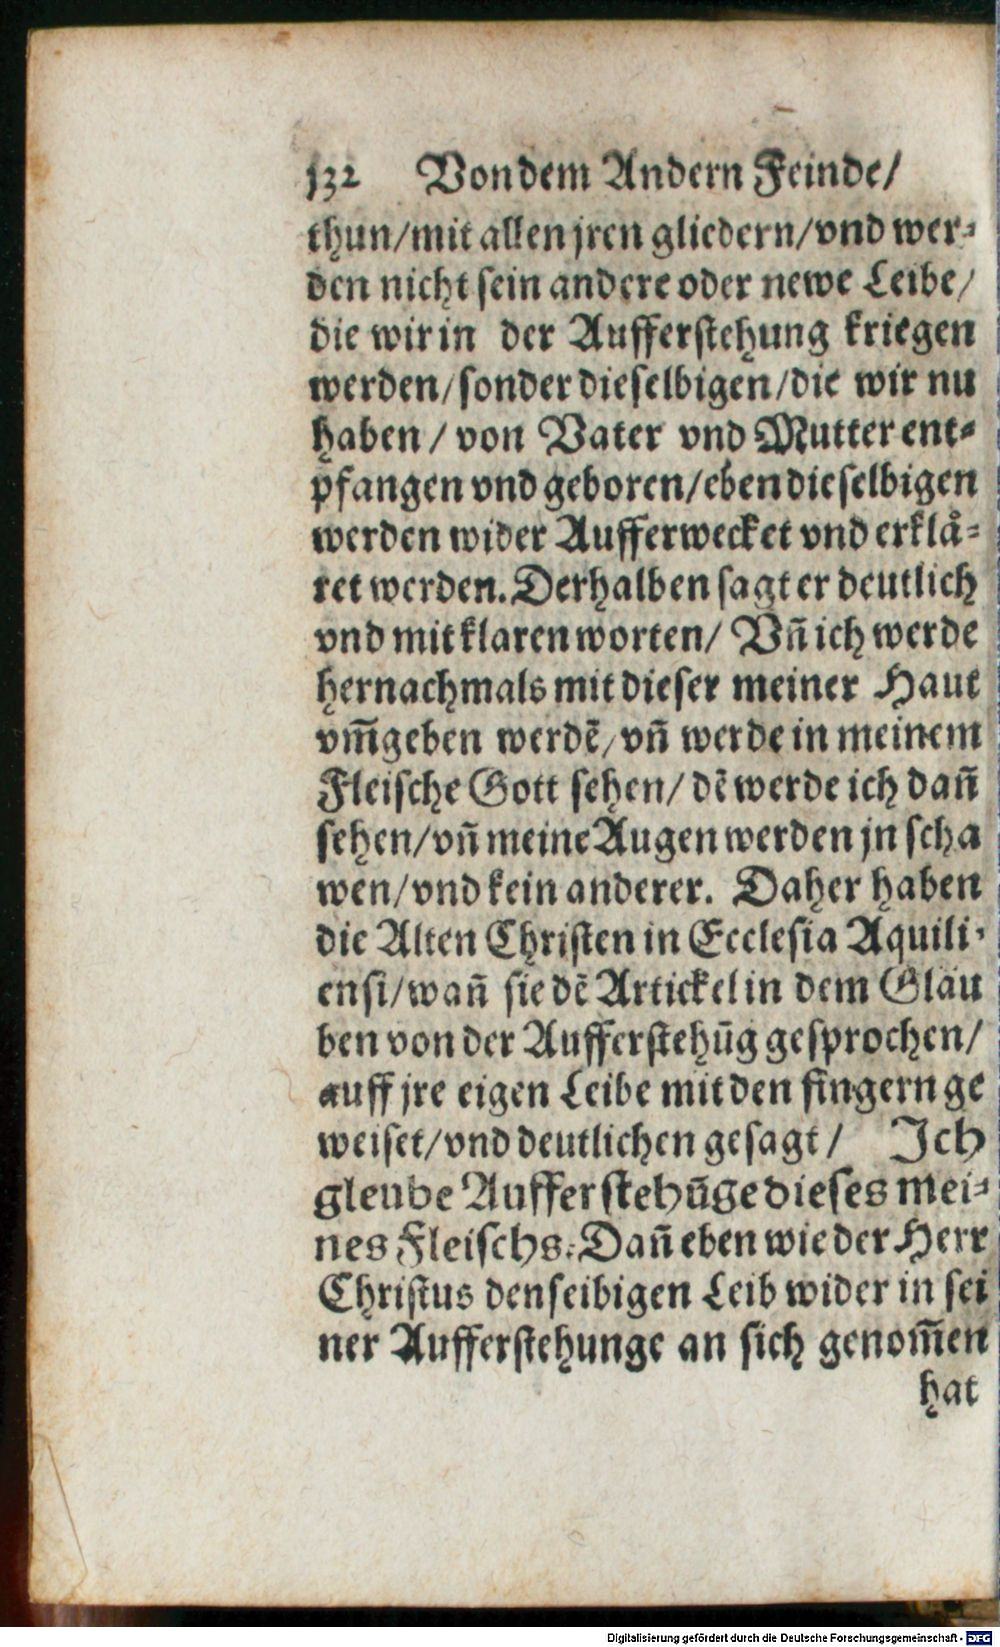 132 Von dem Andern Feinde/
thun/mit allen jren gliedern/vnd wer⸗
den nicht sein andere oder newe Leibe/
die wir in der Aufferstehung kriegen
werden/sonder dieselbigen/die wir nu
haben/von Vater vnd Mutter ent⸗
pfangen vnd geboren/eben dieselbigen
werden wider Aufferwecket vnd erklaͤ⸗
ret werden. Derhalben sagt er deutlich
vnd mit klaren worten/ Vn̄ ich werde
hernachmals mit dieser meiner Haut
vm̄geben werdē/vn̄ werde in meinem
Fleische Gott sehen/dē werde ich dan̄
sehen/vn̄ meine Augen werden jn scha
wen/vnd kein anderer. Daher haben
die Alten Christen in Ecclesia Aquili⸗
ensi/wan̄ sie dē Artickel in dem Glau
ben von der Aufferstehūg gesprochen/
auff jre eigen Leibe mit den fingern ge
weiset/vnd deutlichen gesagt/ Ich
gleube Aufferstehūge dieses mei⸗
nes Fleischs. Dan̄ eben wie der Herr
Christus denseibigen Leib wider in sei
ner Aufferstehunge an sich genom̄en
hat
Digitalisierung gefördert durch die Deutsche Forschungsgemeinschaft - DFG